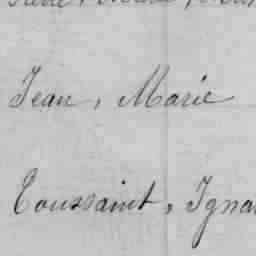 Jean, Marie
Toussaint, Igna